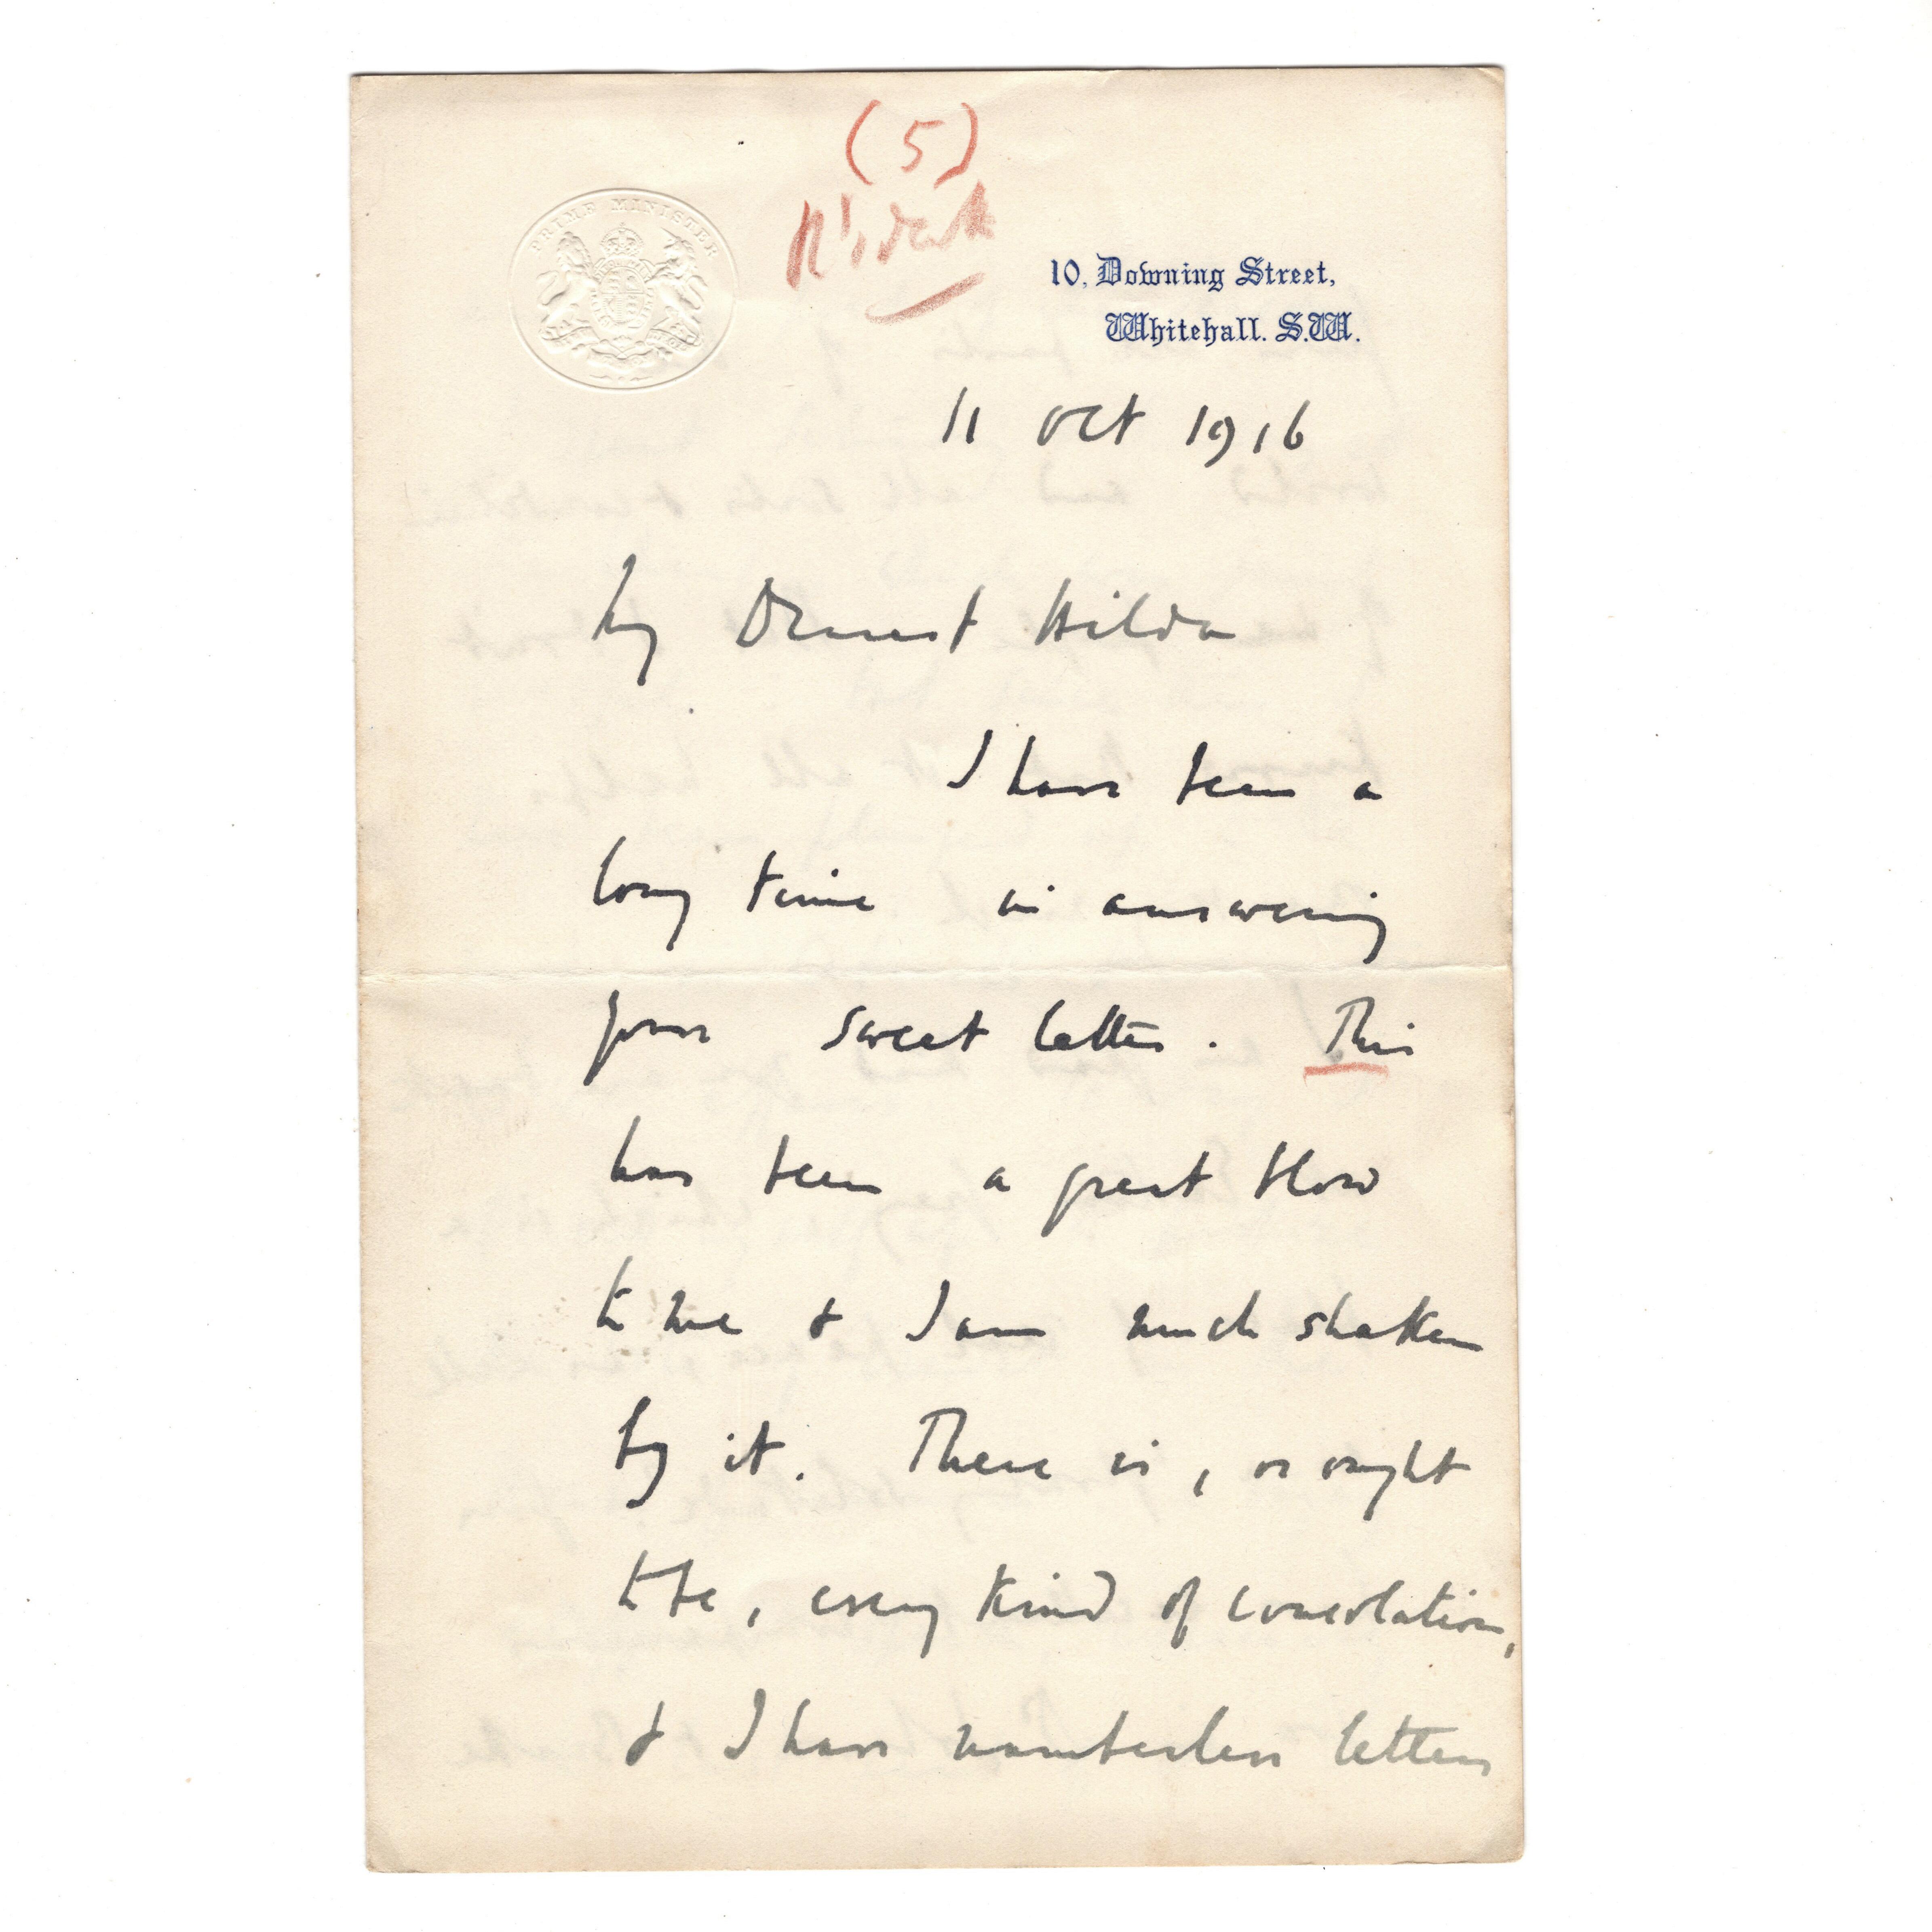 (5)
R's death
PRIME MINISTER
10, Downing Street,
Whitehall. S.W.
11 Oct 1916
My Dearest Hilda
I have been a
long time in answering
your sweet letter. This
has been a great blow
to me & I am much shaken
by it. There is, or ought
to be, every kind of consolation,
& I have numberless letters